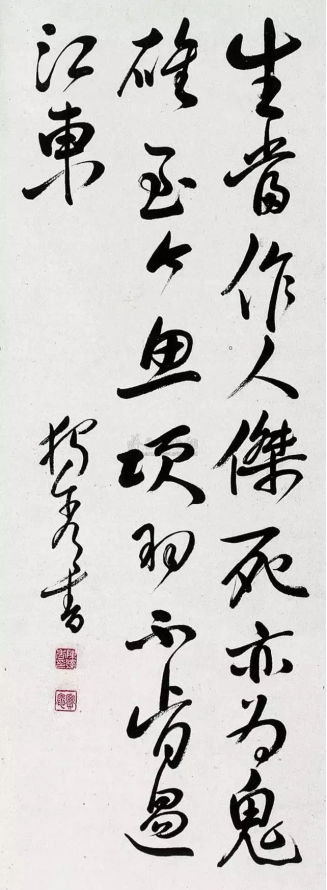 生當作人傑死亦为鬼
雄至今思項羽不肯過
江東
独秀書